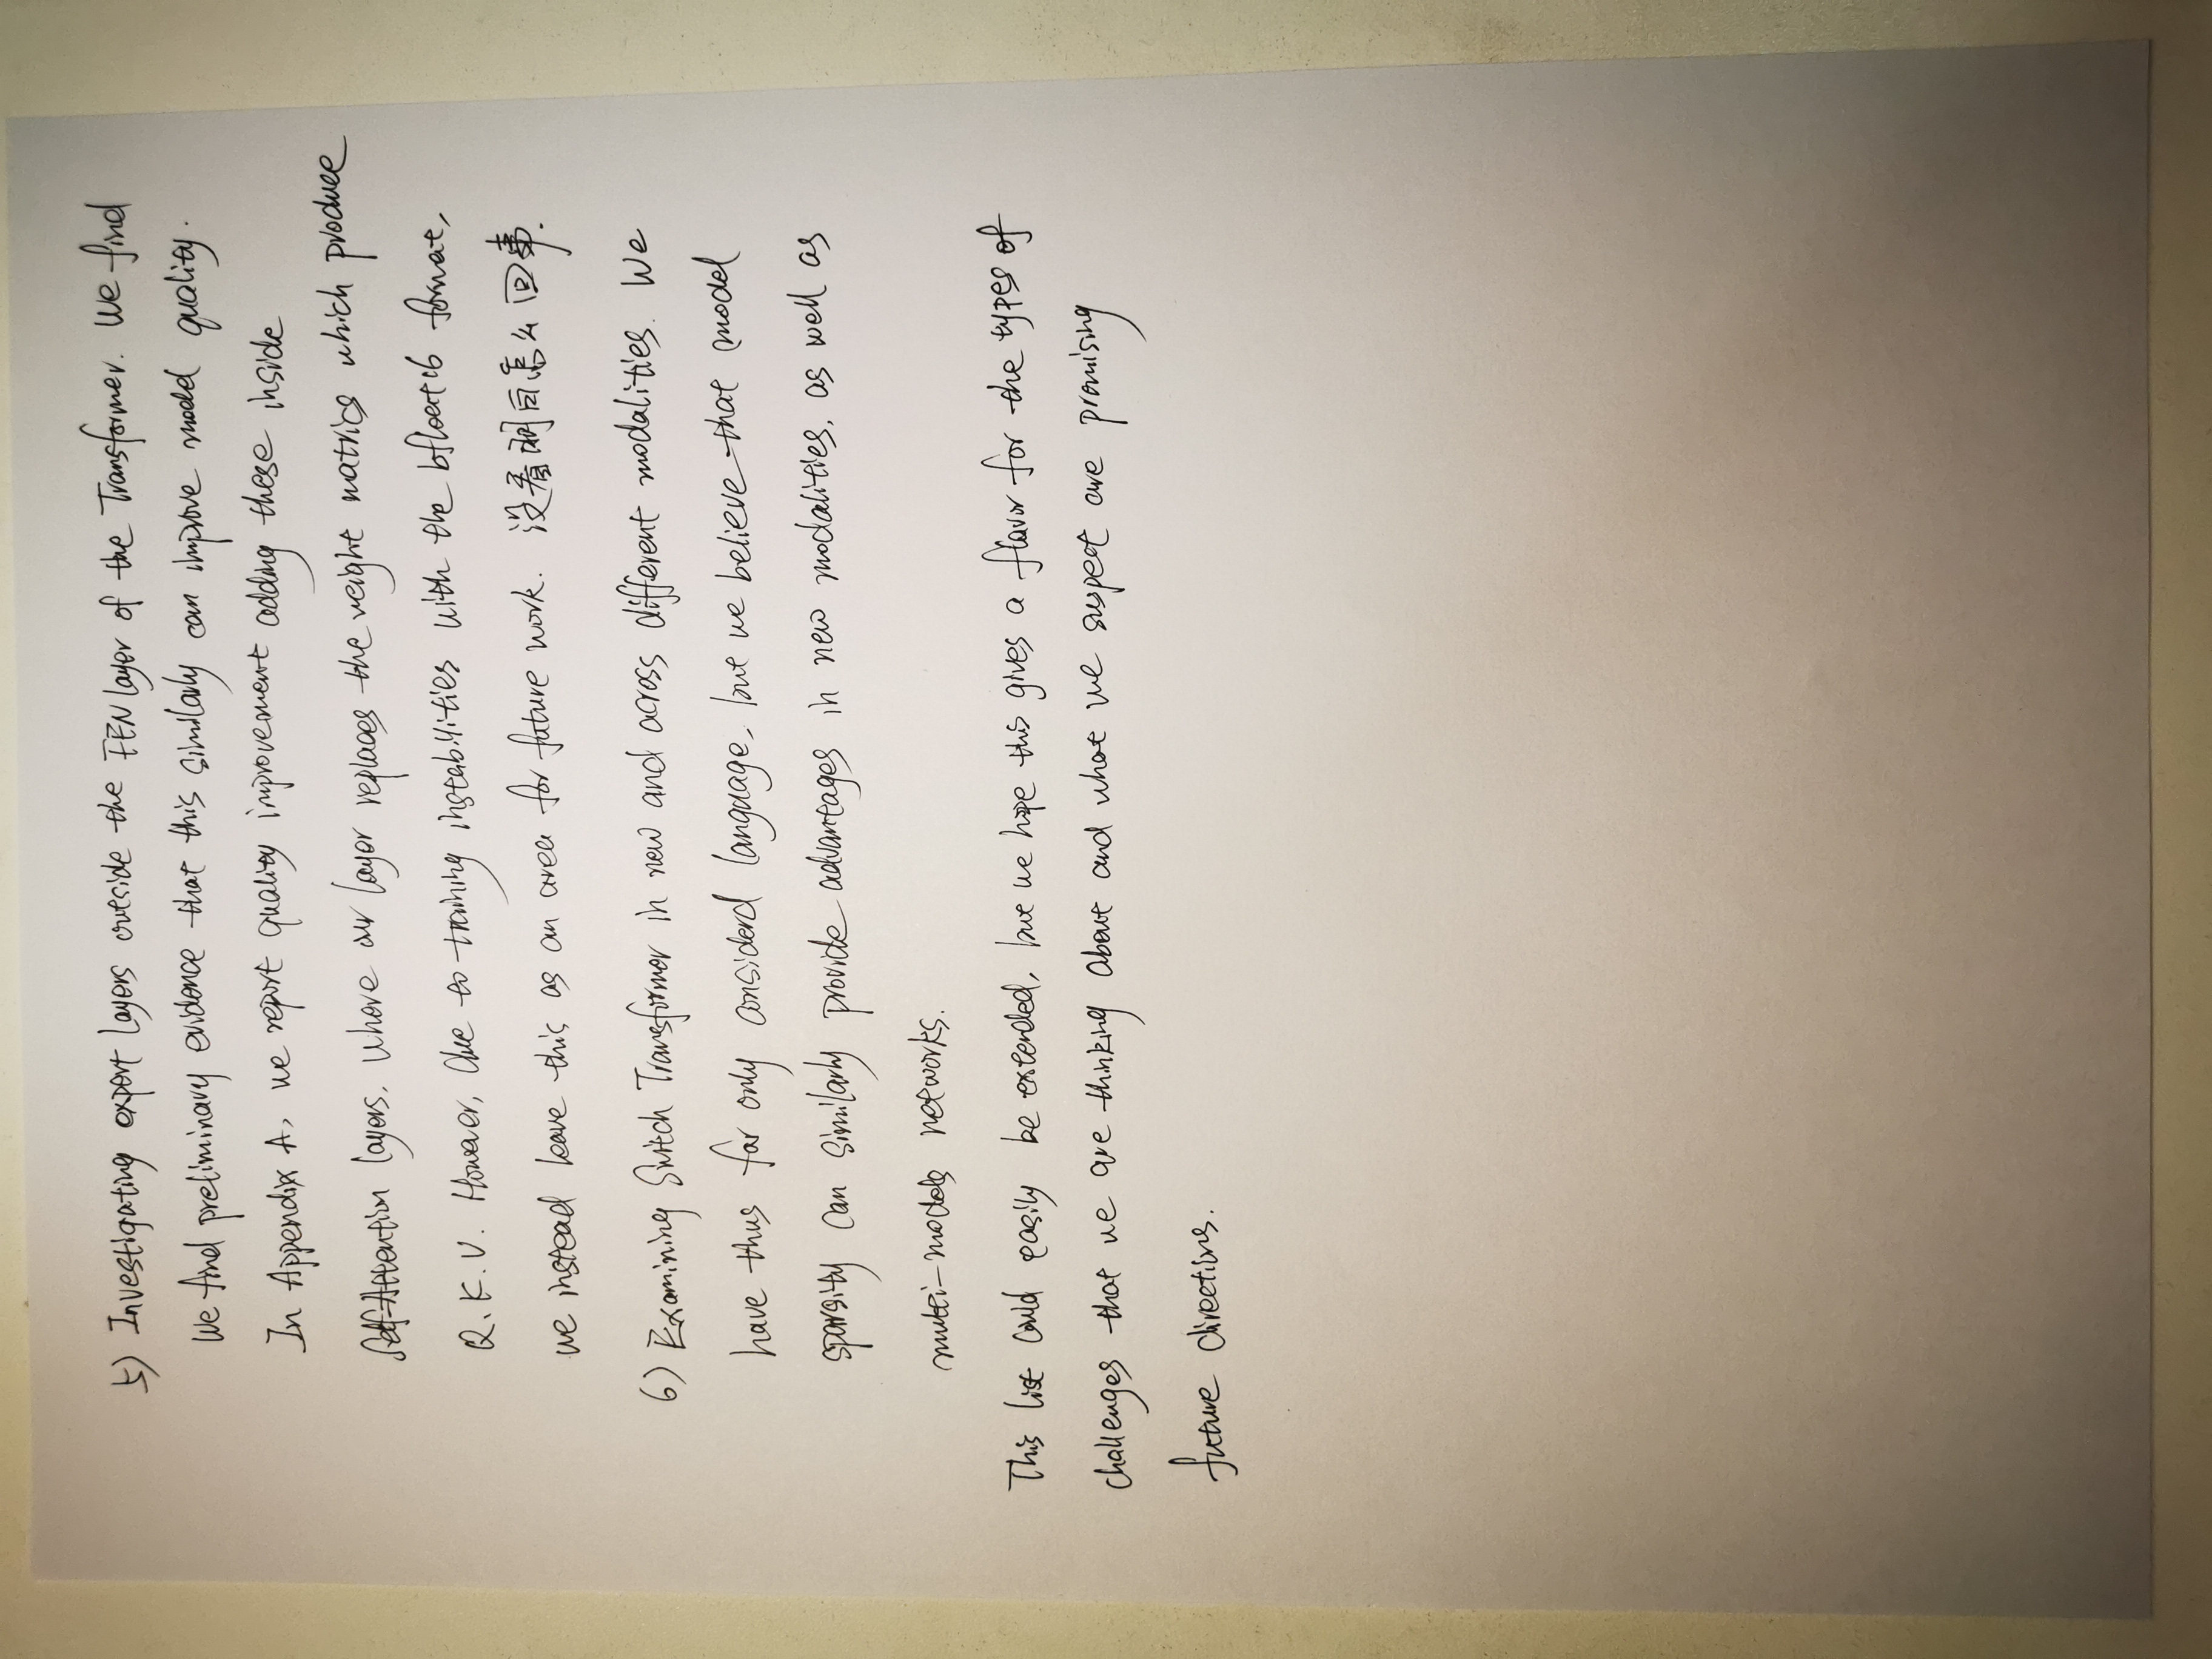 5) Investigating expert layers outside the FFN layer of the Transformer. We find
We find preliminary evidence that this similarly can improve model quality.
In Appendix A, we report quality improvement adding these inside
Self-Attention layers, where our layer replaces the weight matrics which produce
Q. K. V. However, due to training instabilities with the bfloat16 format,
we instead leave this as an area for future work. 没看明白怎么回事.
6) Examining Switch Transformer in new and across different modalities. We
have thus far only considerd language, but we believe that model
sparsity can similarly provide advantages in new modalities, as well as
multi-models networks.
This list could easily be extended, but we hope this gives a flavor for the types of
challenges that we are thinking about and what we suspect are promising
future directions.